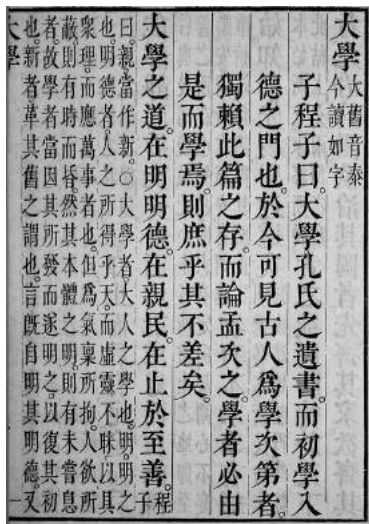 大學 大舊音泰
今讀如字
子程子曰。大學孔氏之遺書。而初學入
德之門也。於今可見古人爲學次第者。
獨賴此篇之存。而論孟次之。學者必由
是而學焉。則庶乎其不差矣。
大學之道。在明明德。在親民。在止於至善。程子
曰。親當作新。○大學者大人之學也。明。明之
也。明德者。人之所得乎天。而虛靈不昧。以具
衆理。而應萬事者也。但爲氣稟所拘。人欲所
蔽。則有時而昏。然其本體之明。則有未嘗息
者。故學者當因其所發而遂明之。以復其初
也。新者革其舊之謂也。言旣自明其明德。又
大學 一